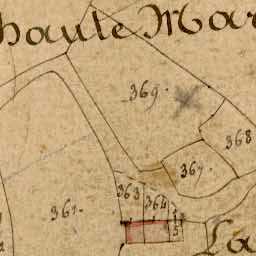 haute Mar
369.
368
367.
363
364
361.
5
La